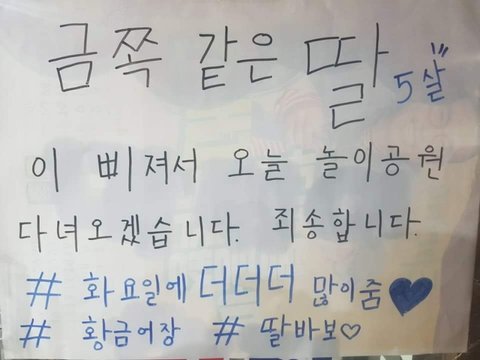 금쪽 같은 딸 5살
이 삐져서 오늘 놀이공원
다녀오겠습니다. 죄송합니다.
# 화요일에 더더더 많이줌 ♥
# 황금어장 # 딸바보♡